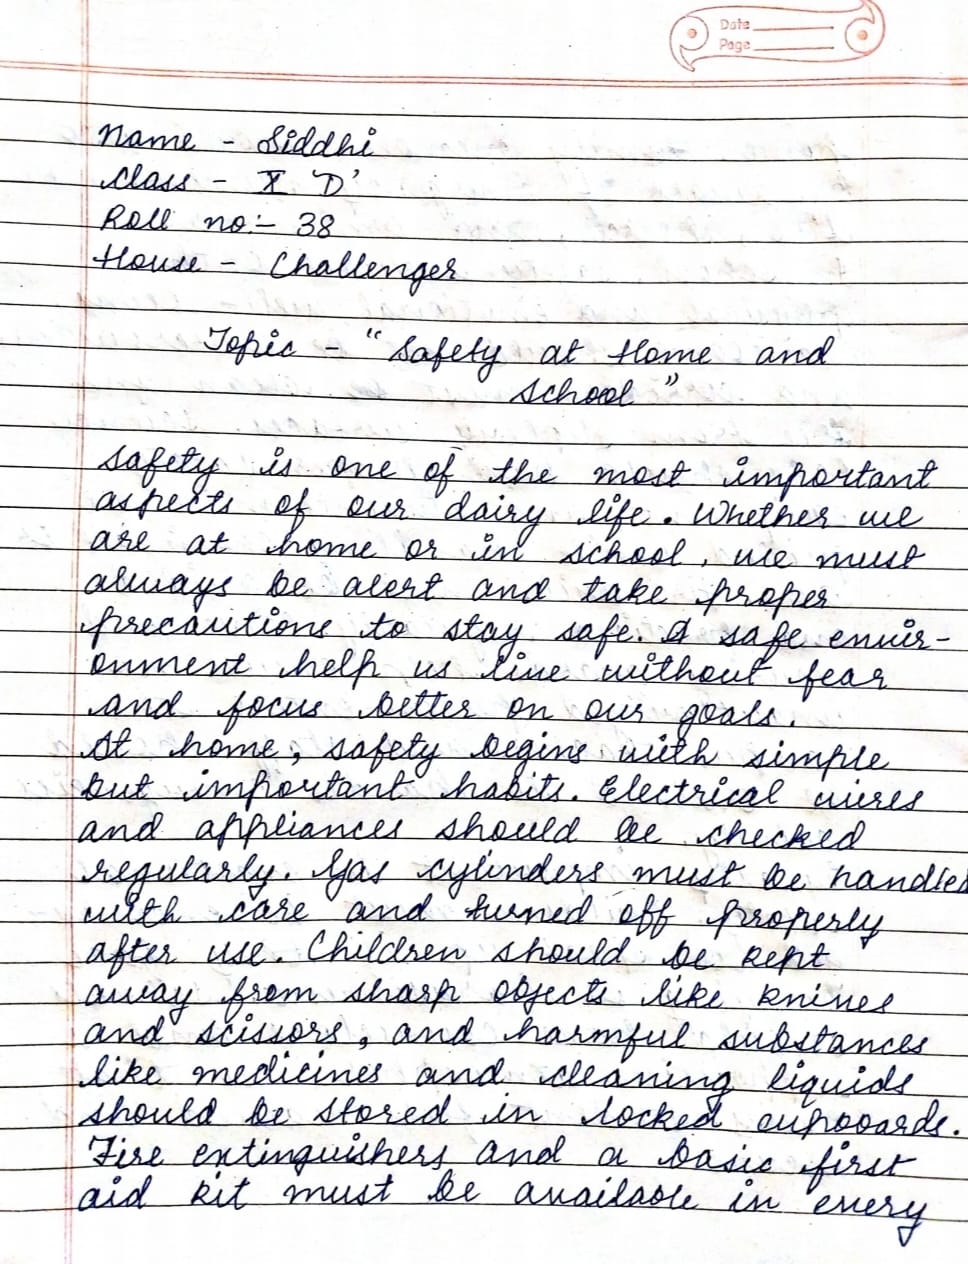 Date
Page
Name - Siddhi
Class - X 'D'
Roll no:- 38
House - Challenger
Topic - "Safety at Home and
School"
Safety is one of the most important
aspects of our dairy life. Whether we
are at home or in school, we must
always be alert and take proper
precautions to stay safe. A safe envir-
onment help us live without fear
and focus better on our goals.
At home, safety begins with simple
but important habits. Electrical wires
and appliances should be checked
regularly. Gas cylinders must be handled
with care and turned off properly
after use. Children should be kept
away from sharp objects like knives
and scissors, and harmful substances
like medicines and cleaning liquids
should be stored in locked cupboards.
Fire extinguishers and a basic first
aid kit must be available in every